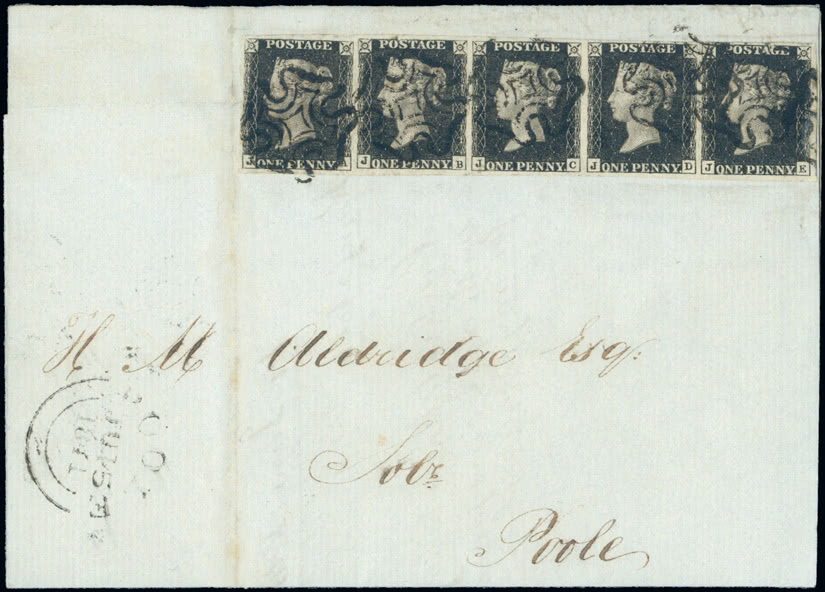 POSTAGE POSTAGE POSTAGE POSTAGE POSTAGE
ONE PENNY ONE PENNY ONE PENNY ONE PENNY ONE PENNY
J A J B J C J D J E
H M Aldridge Esq:
Solr
Poole
1841